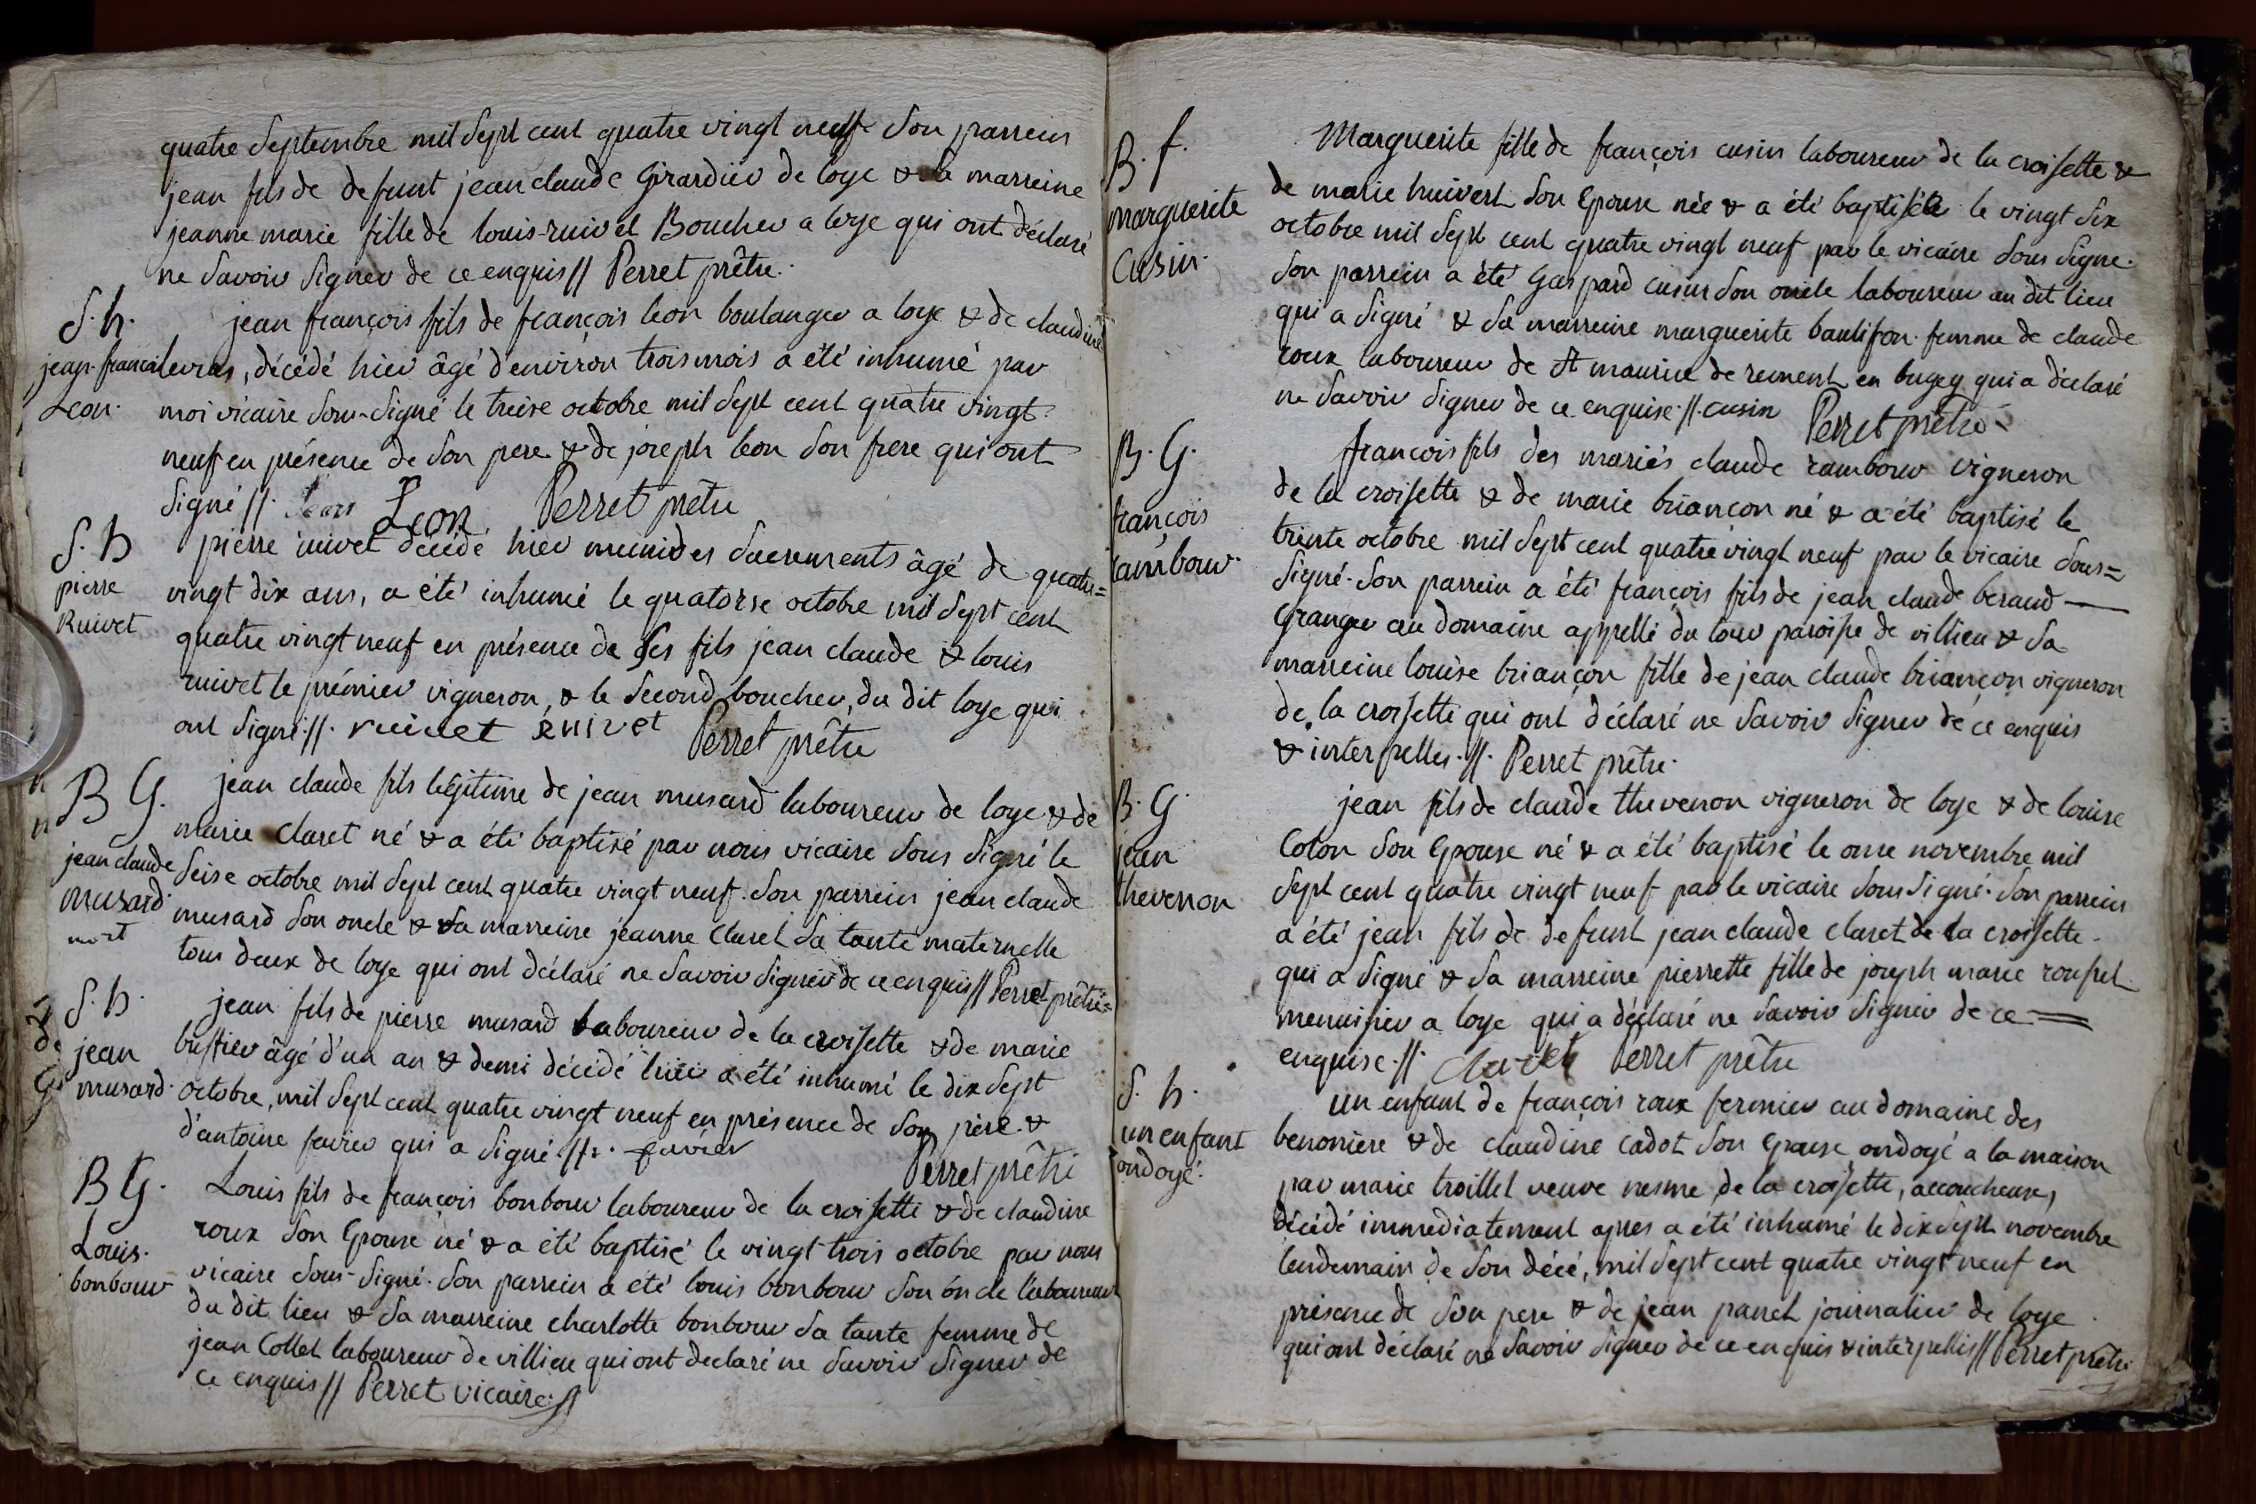 quatre Septembre mil Sept cent quatre vingt neuf Son parrein
jean fils de defunt jean claude Girardier de loye & la marreine
jeanne marie fille de louis ruivet Boucher a loye qui ont déclaré
ne Savoir Signer de ce enquis // Perret prêtre.
S. h.
jean françois
Leon.
jean françois fils de françois leon boulanger a loye & de claudine
levras, décédé hier âgé d'environ trois mois a été inhumé par
moi vicaire Sous-Signé le treise octobre mil Sept cent quatre vingt
neuf en présence de Son pere & de joseph leon Son frere qui ont
Signé //. Leon Perret prêtre
S. h
pierre
Ruivet
pierre ruivet décédé hier muni des Sacrements âgé de quatre=
vingt dix ans, a été inhumé le quatorse octobre mil Sept cent
quatre vingt neuf en présence de Ses fils jean claude & louis
ruivet le prémier vigneron, & le Second boucher, du dit loye qui
ont Signé //. ruivet ruivet Perret prêtre
B G.
jean claude
musard
mort
jean claude fils légitime de jean musard laboureur de loye & de
marie Claret né & a été baptisé par nous vicaire Sous Signé le
Seise octobre mil Sept cent quatre vingt neuf. Son parrein jean claude
musard Son oncle & Sa marreine jeanne Claret Sa tante maternelle
tous deux de loye qui ont déclaré ne Savoir Signer de ce enquis // Perret prêtre=
S. h.
jean
musard.
jean fils de pierre musard laboureur de la croisette & de marie
buffier âgé d'un an & demi décédé hier a été inhumé le dix Sept
octobre, mil Sept cent quatre vingt neuf en présence de Son père &
d'antoine favier qui a Signé //. favier
Perret prêtre
B G.
Louis.
bonbour
Louis fils de françois bonbour laboureur de la croisette & de claudine
roux Son Epouse né & a été baptisé le vingt trois octobre par nous
vicaire Sous-Signé. Son parrein a été louis bonbour Son oncle laboureur
du dit lieu & Sa marreine charlotte bonbour Sa tante femme de
jean Collet laboureur de villieu qui ont declaré ne Savoir Signer de
ce enquis // Perret vicaire //
B. f.
marguerite
Cusin.
Marguerite fille de françois cusin laboureur de la croisette &
de marie huivert Son Epouse née & a été baptisée le vingt Six
octobre mil Sept cent quatre vingt neuf par le vicaire Sous Signé.
Son parrein a été Gaspard cusin Son oncle laboureur au dit lieu
qui a Signé & Sa marreine marguerite baulifon femme de claude
roux laboureur de St maurice de rement en bugey qui a déclaré
ne Savoir Signer de ce enquise //. cusin Perret prêtre
B. G.
françois
rambour.
françois fils des mariés claude rambour vigneron
de la croisette & de marie briançon né & a été baptisé le
trente octobre mil Sept cent quatre vingt neuf par le vicaire Sous=
Signé. Son parrein a été françois fils de jean claude beraud
Granger au domaine appellé du tour paroisse de villieu & Sa
marreine louise briançon fille de jean claude briançon vigneron
de la croisette qui ont déclaré ne Savoir Signer de ce enquis
& interpellés. //. Perret prêtre.
B. G.
jean
thevenon
jean fils de claude thevenon vigneron de loye & de louise
Coton Son Epouse né & a été baptisé le onse novembre mil
Sept cent quatre vingt neuf par le vicaire Sous Signé. Son parrein
a été jean fils de defunt jean claude claret de la croisette
qui a Signé & Sa marreine pierrette fille de joseph marie roussel
menuisier a loye qui a déclaré ne Savoir Signer de ce =
enquise. //. Claret Perret prêtre
S. h.
un enfant
ondoyé.
Un enfant de françois roux fermier au domaine des
benonière & de claudine cadot Son Epouse ondoyé a la maison
par marie troillet veuve nesme de la croisette, accoucheuse,
décédé immediatement apres a été inhumé le dix Sept novembre
lendemain de Son décé, mil Sept cent quatre vingt neuf en
présence de Son pere & de jean panet journalier de loye
qui ont déclaré ne Savoir Signer de ce enquis & interpellés // Perret prêtre